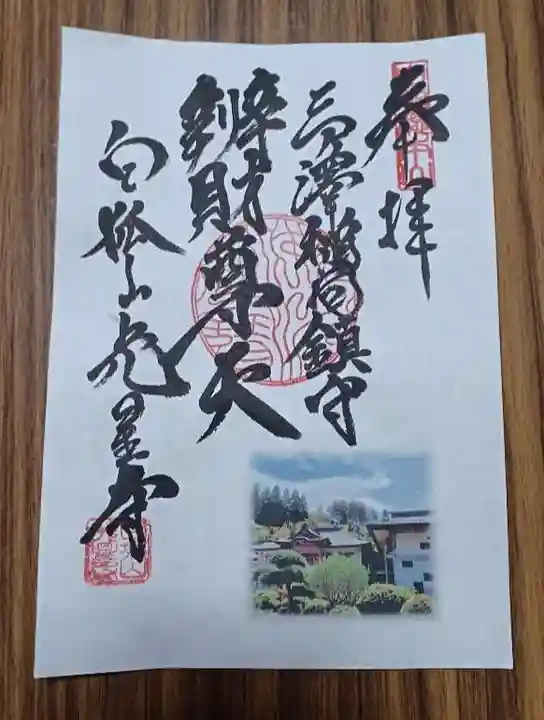 奉拝
高澤稲荷鎮守
辨財尊天
白狐山光星寺